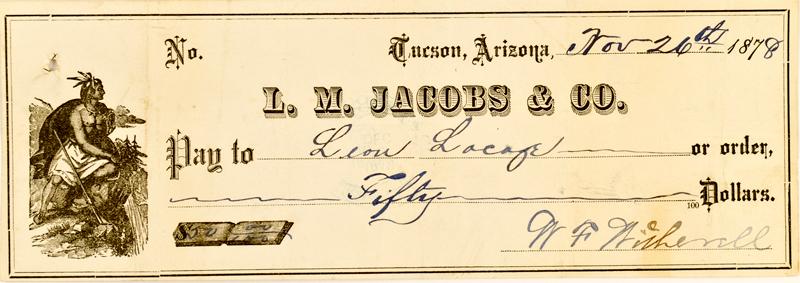 No. Tucson, Arizona, Nov 26th 1878
L. M. JACOBS & CO.
Pay to Leon Lacage or order,
Fifty 100 Dollars.
$50
W F Witherell